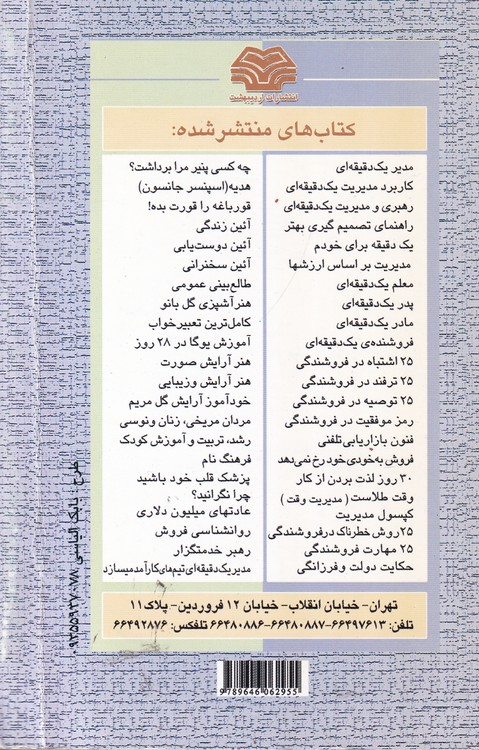 انتشارات اردیبهشت
کتاب‌های منتشر شده:
مدیر یک‌دقیقه‌ای
کاربرد مدیریت یک‌دقیقه‌ای
رهبری و مدیریت یک‌دقیقه‌ای
راهنمای تصمیم گیری بهتر
یک دقیقه برای خودم
مدیریت بر اساس ارزشها
معلم یک‌دقیقه‌ای
پدر یک‌دقیقه‌ای
مادر یک‌دقیقه‌ای
فروشنده‌ی یک‌دقیقه‌ای
۲۵ اشتباه در فروشندگی
۲۵ ترفند در فروشندگی
۲۵ توصیه در فروشندگی
رمز موفقیت در فروشندگی
فنون بازاریابی‌تلفنی
فروش به‌خودی‌خود رخ نمی‌دهد
۳۰ روز لذت بردن از کار
وقت طلاست ( مدیریت وقت )
کپسول مدیریت
۲۵روش خطرناک درفروشندگی
۲۵ مهارت فروشندگی
حکایت دولت وفرزانگی
چه کسی پنیر مرا برداشت؟
هدیه(اسپنسر جانسون)
قورباغه را قورت بده!
آئین زندگی
آئین دوست‌یابی
آئین سخنرانی
طالع‌بینی عمومی
هنرآشپزی گل بانو
کامل‌ترین تعبیرخواب
آموزش یوگا در ۲۸ روز
هنر آرایش صورت
هنر آرایش وزیبایی
خودآموز آرایش گل مریم
مردان مریخی، زنان ونوسی
رشد، تربیت و آموزش کودک
فرهنگ نام
پزشک قلب خود باشید
چرا نگرانید؟
عادتهای میلیون دلاری
روانشناسی فروش
رهبر خدمتگزار
مدیریک‌دقیقه‌ای‌تیم‌های‌کارآمدمیسازد
تهران- خیابان انقلاب- خیابان ۱۲ فروردین- پلاک ۱۱
تلفن: ۶۶۴۹۷۶۱۳-۶۶۴۸۰۸۸۷-۶۶۴۸۰۸۸۶ تلفکس: ۶۶۴۹۲۸۷۶
9789646062955
طرح : بابک الیاسی